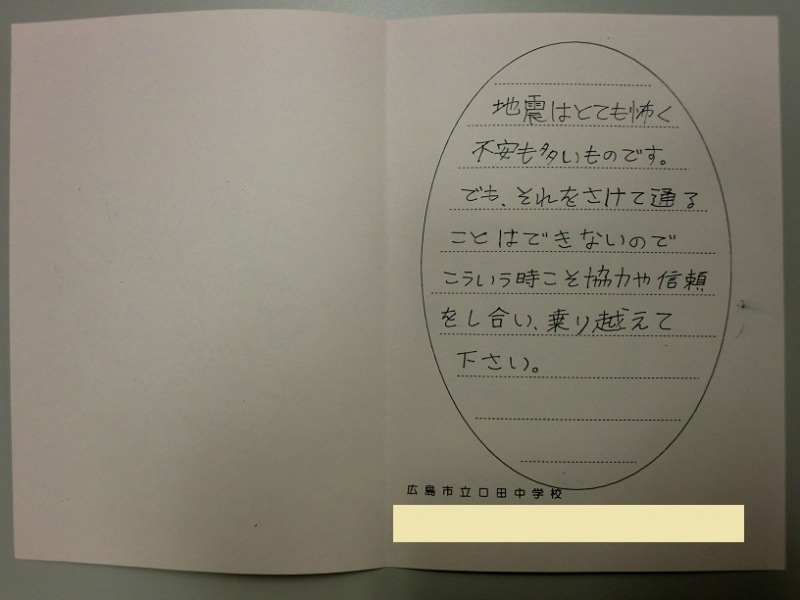 地震はとても怖く
不安も多いものです。
でも、それをさけて通る
ことはできないので
こういう時こそ協力や信頼
をし合い、乗り越えて
下さい。
広島市立口田中学校